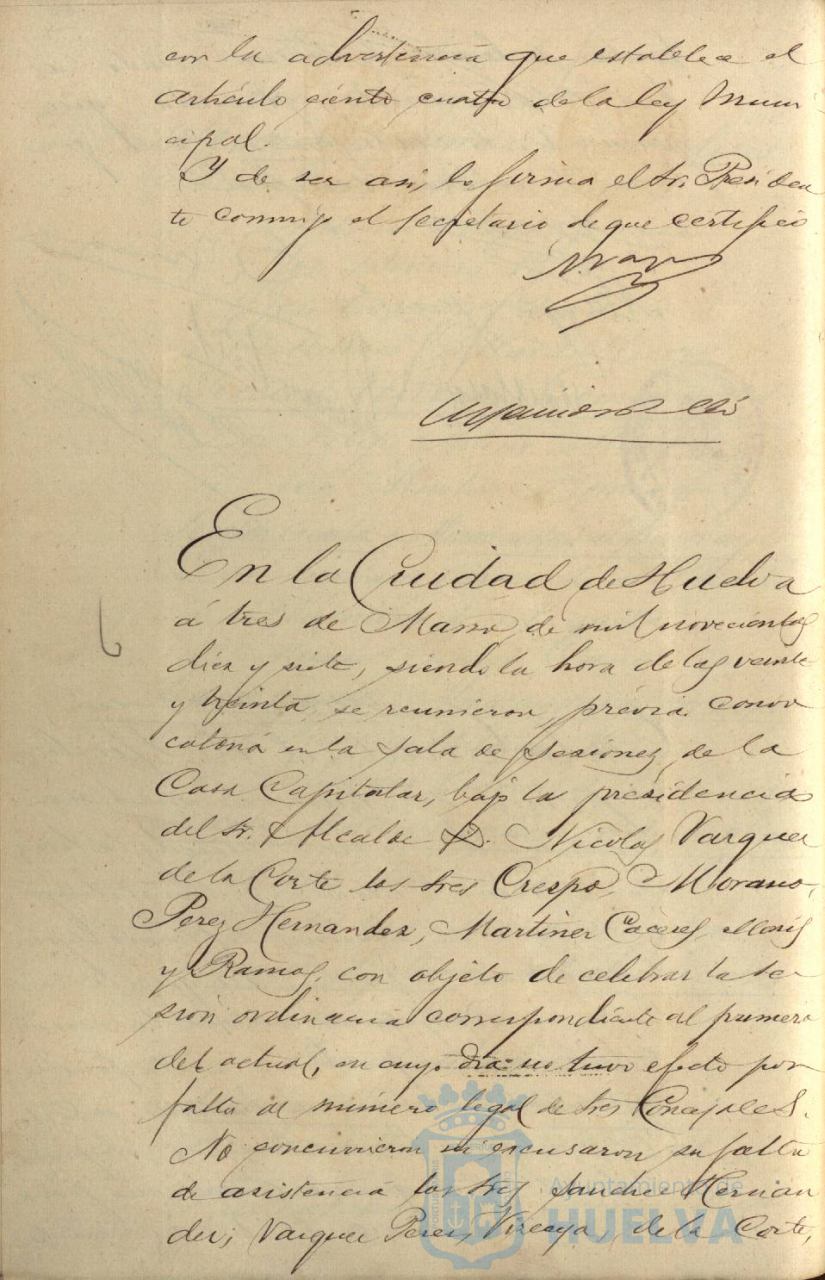 con la advertencia que establece el
articulo ciento cuatro de la ley Muni
cipal.
Y de ser asi, lo firma el Sr. Presiden
te conmigo el secretario de que certifico
En la Ciudad de Huelva
á tres de Marzo de mil novecientos
diez y siete, siendo la hora de las veinte
y treinta, se reunieron prévia convo
catoria en la Sala de Sesiones de la
Casa Capitular, bajo la presidencia
del Sr. Alcalde D. Nicolas Vazquez
de la Corte los Sres Crespo, Morano,
Perez Hernandez, Martinez Cáceres,
y Ramos, con objeto de celebrar la se
sión ordinaria correspondiente al primero
del actual, en cuyo dia no tuvo efecto por
falta de número legal de Sres Concejales.
No concurrieron ni escusaron su falta
de asistencia los Sres Sanchez Hernan
dez, Vazquez Perez, Vizcaya, de la Corte,
Ayuntamiento de
HUELVA